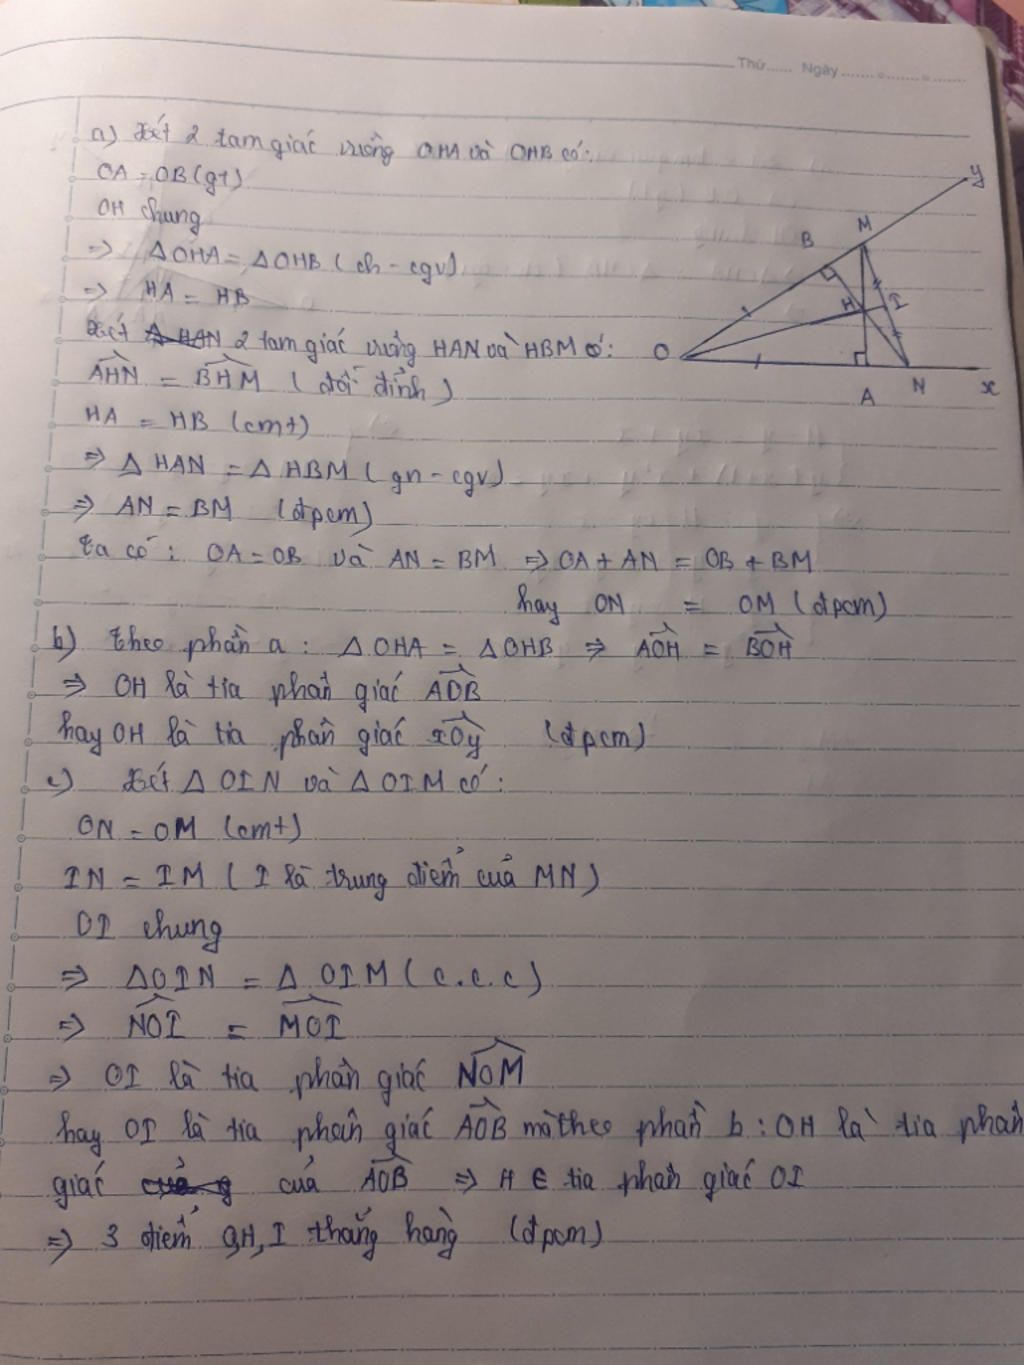 Thứ...... Ngày.......o.......o.......
a) Xét 2 tam giác vuông OHA và OHB có:
OA = OB (gt)
OH chung
=> ΔOHA = ΔOHB (ch - cgv)
=> HA = HB
Xét 2 tam giác vuông HAN và HBM có:
AHN = BHM (đối đỉnh)
HA = HB (cmt)
=> Δ HAN = Δ HBM (gn - cgv)
=> AN = BM (đpcm)
Ta có: OA = OB và AN = BM => OA + AN = OB + BM
hay ON = OM (đpcm)
b) Theo phần a : ΔOHA = ΔOHB => AOH = BOH
=> OH là tia phân giác AOB
hay OH là tia phân giác xOy (đpcm)
c) Xét Δ OIN và Δ OIM có:
ON = OM (cmt)
IN = IM (I là trung điểm của MN)
OI chung
=> ΔOIN = Δ OIM (c.c.c)
=> NOI = MOI
=> OI là tia phân giác NOM
hay OI là tia phân giác AOB mà theo phần b : OH là tia phân
giác của AOB => H ∈ tia phân giác OI
=> 3 điểm O,H,I thẳng hàng (đpcm)
y
M
B
I
H
O
A
N
x